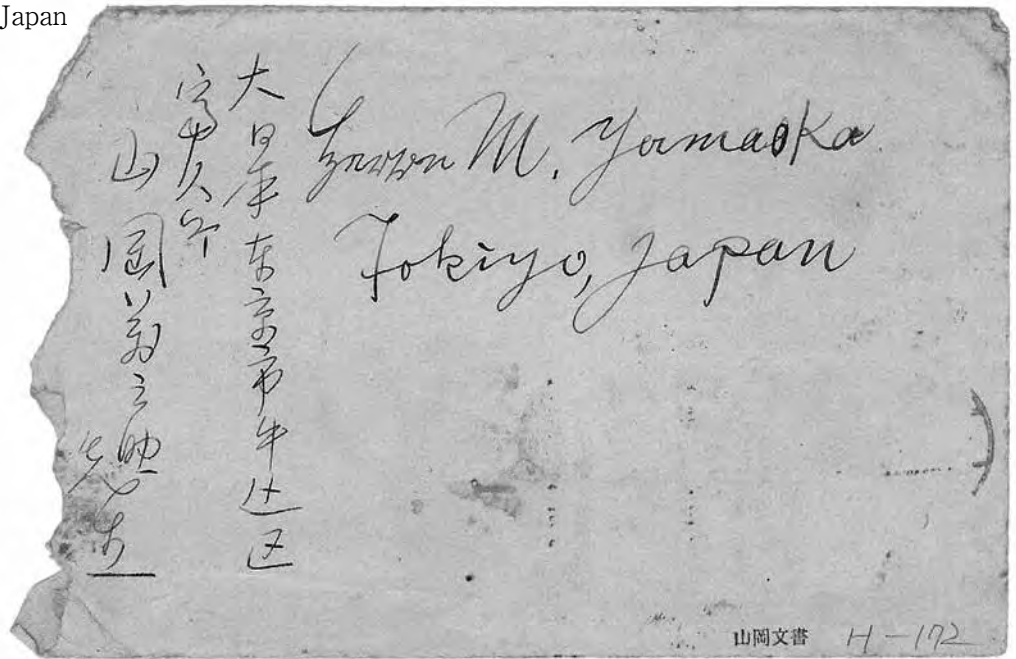 Japan
M. Yamaoka
Tokiyo, Japan
大日本东京市牛込区
富久町
山岡萬之助
山岡文書 H-172